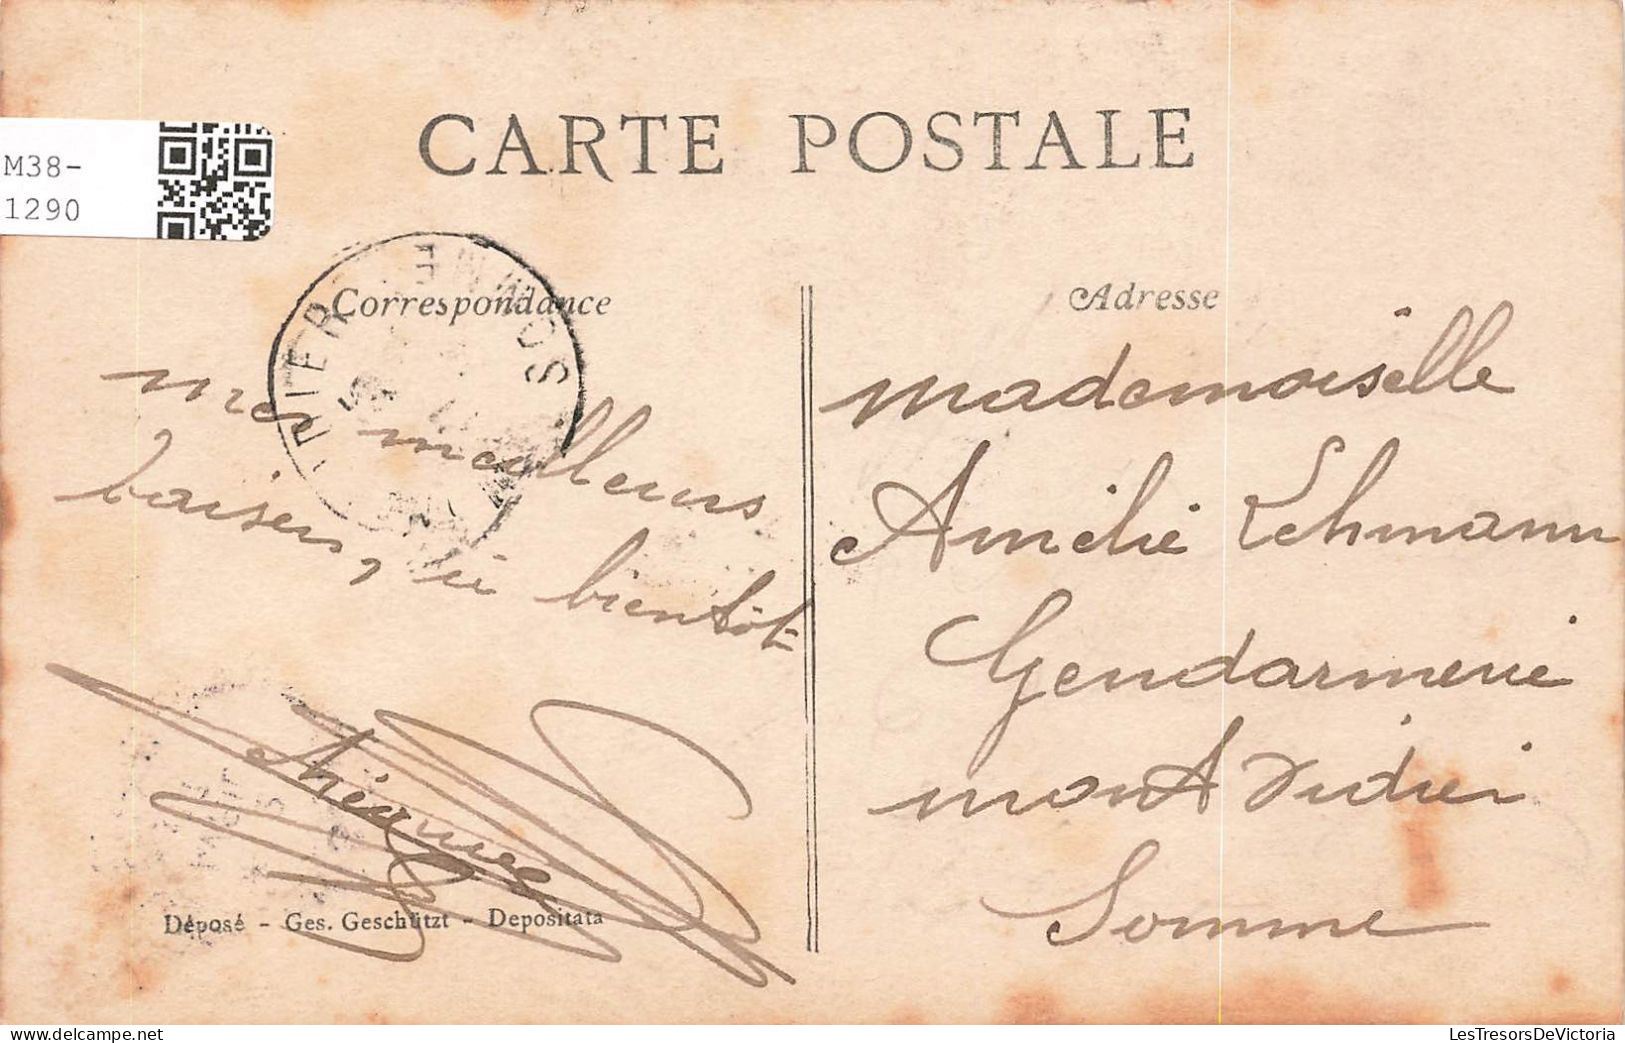 CARTE POSTALE
M38-
1290
Correspondance
mes meilleurs
baisers, à bientôt
Déposé - Ges. Geschützt - Depositata
SOMME
Adresse
Mademoiselle
Amélie Lehmann
Gendarmerie
Montdidier
Somme
LesTresorsDeVictoria.com